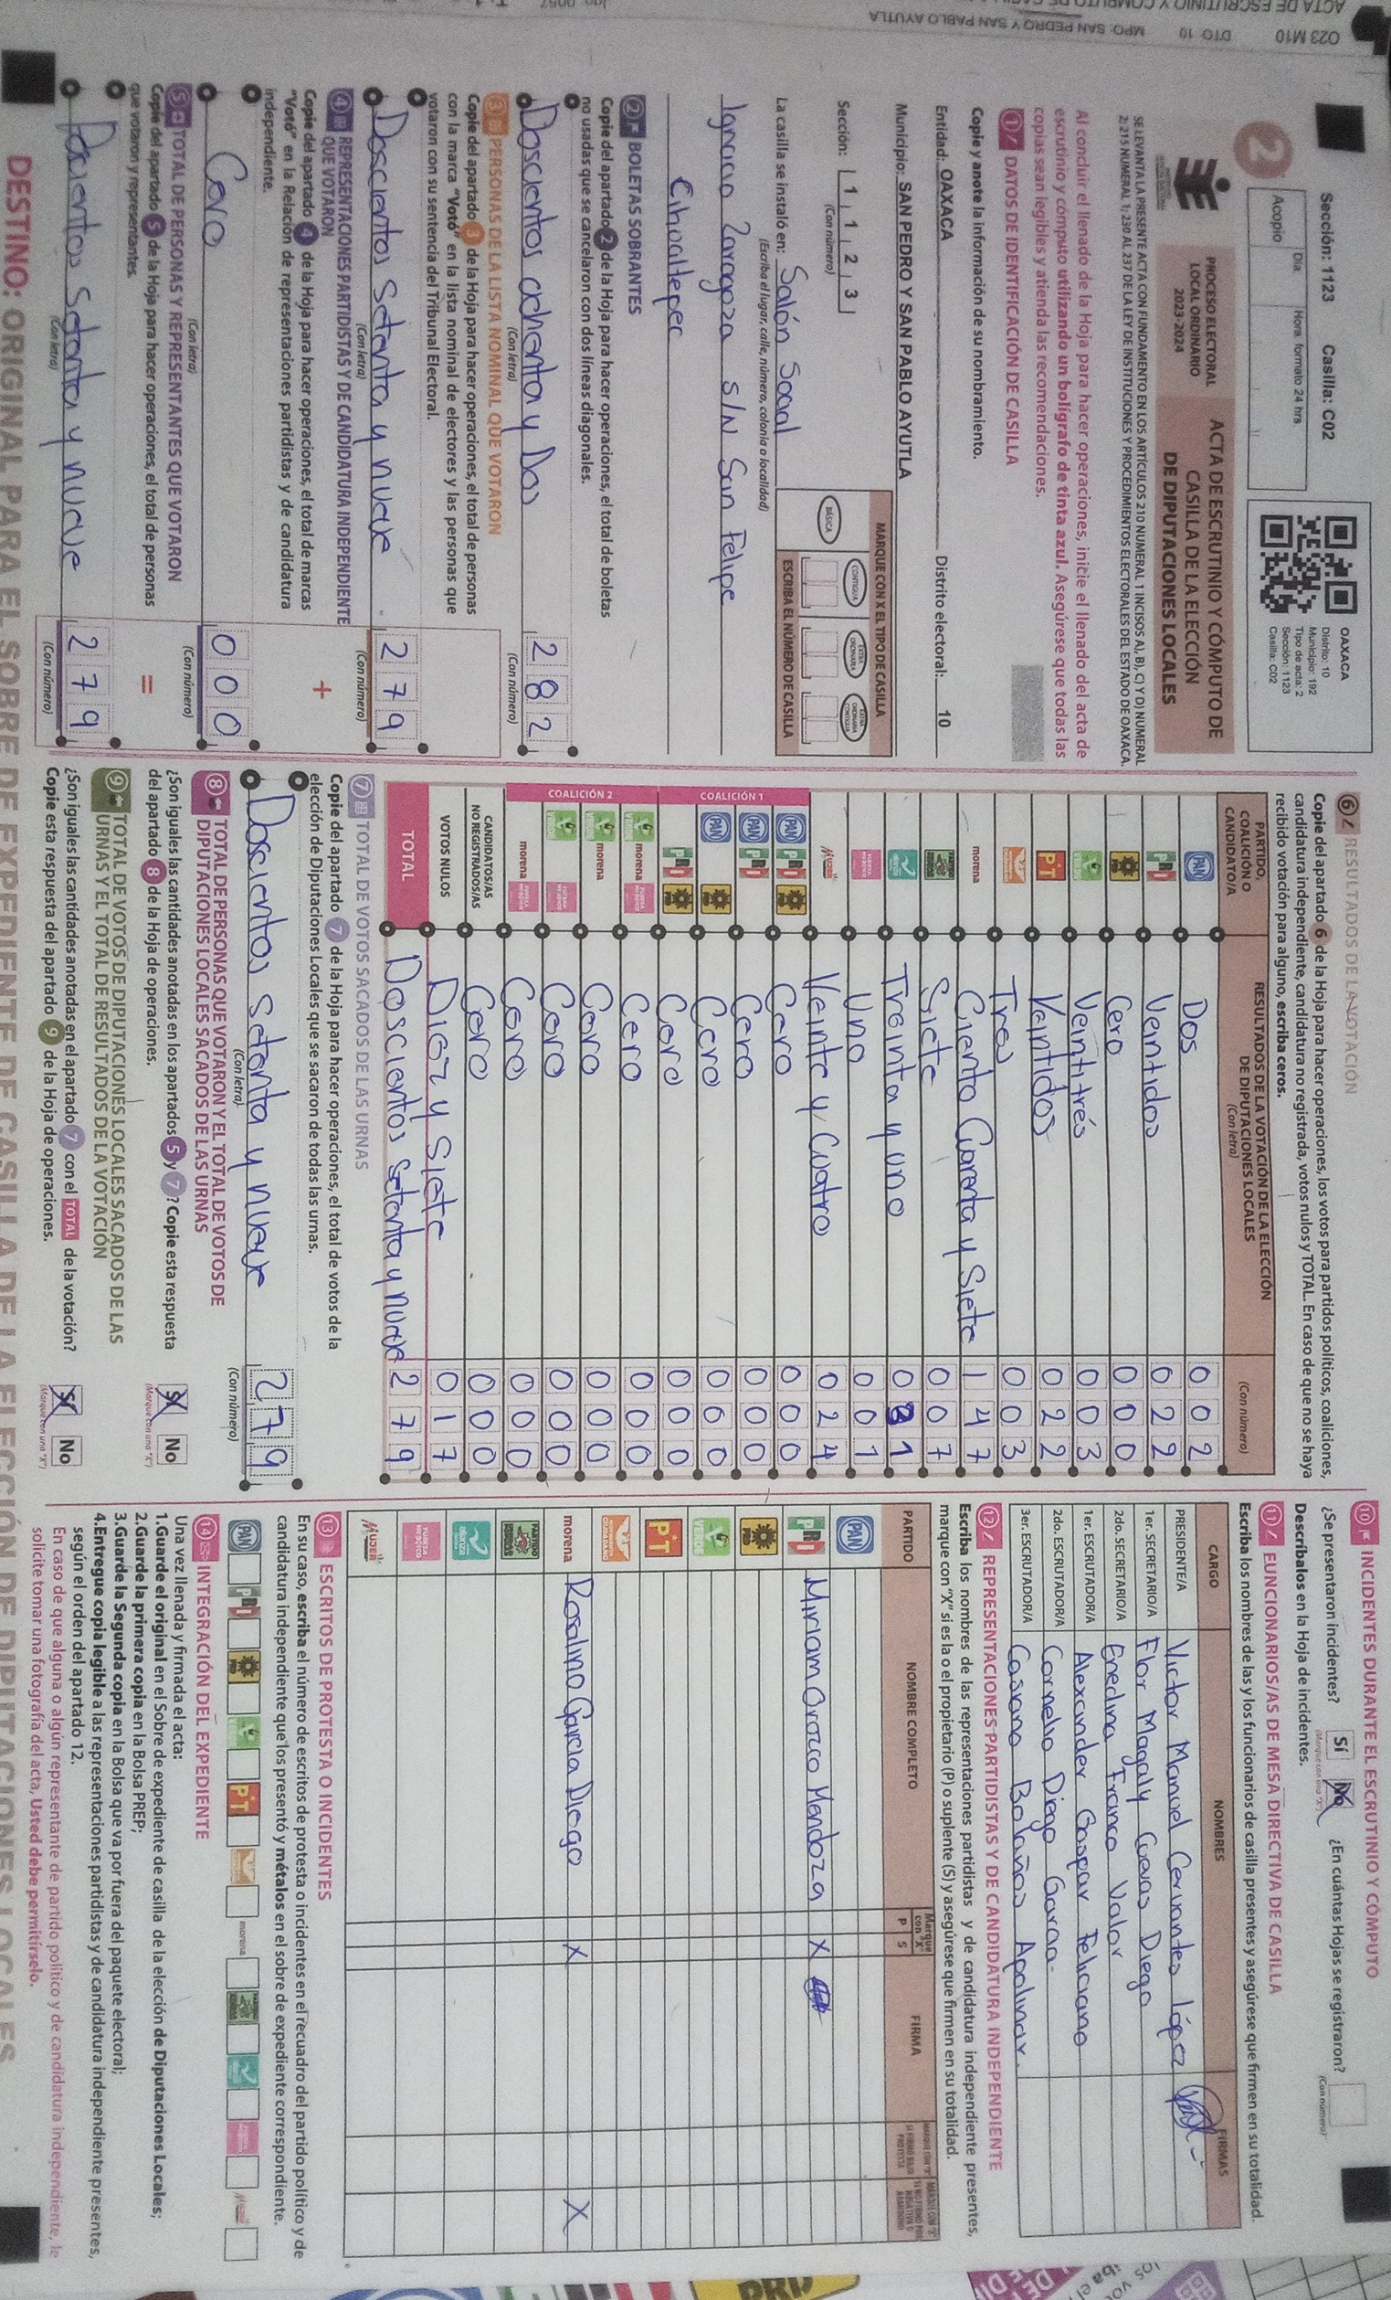 ACTA DE ESCRUTINIO Y CÓMPUTO DE
023 M10 DTO 10 MPO: SAN PEDRO Y SAN PABLO AYUTLA
Sección: 1123 Casilla: C02
2
Acopio
Día
Hora formato 24 hrs
OAXACA
Distrito: 10
Municipio: 192
Tipo de acta: 2
Sección: 1123
Casilla: C02
PROCESO ELECTORAL
LOCAL ORDINARIO
2023-2024
ACTA DE ESCRUTINIO Y CÓMPUTO DE
CASILLA DE LA ELECCIÓN
DE DIPUTACIONES LOCALES
SE LEVANTA LA PRESENTE ACTA CON FUNDAMENTO EN LOS ARTÍCULOS 210 NUMERAL 1 INCISOS A), B), C) Y D) NUMERAL
2; 215 NUMERAL 1; 230 AL 237 DE LA LEY DE INSTITUCIONES Y PROCEDIMIENTOS ELECTORALES DEL ESTADO DE OAXACA.
Al concluir el llenado de la Hoja para hacer operaciones, inicie el llenado del acta de
escrutinio y cómputo utilizando un bolígrafo de tinta azul. Asegúrese que todas las
copias sean legibles y atienda las recomendaciones.
1 DATOS DE IDENTIFICACIÓN DE CASILLA
Copie y anote la información de su nombramiento.
Entidad: OAXACA Distrito electoral: 10
Municipio: SAN PEDRO Y SAN PABLO AYUTLA
Sección: 1 1 2 3
(Con número)
MARQUE CON X EL TIPO DE CASILLA
BÁSICA CONTIGUA EXTRA ORDINARIA EXTRA ORDINARIA CONTIGUA
ESCRIBA EL NÚMERO DE CASILLA
La casilla se instaló en: Salón Social
(Escriba el lugar, calle, número, colonia o localidad)
Ignacio Zaragoza s/N San Felipe
Cihualtepec
2 BOLETAS SOBRANTES
Copie del apartado 2 de la Hoja para hacer operaciones, el total de boletas
no usadas que se cancelaron con dos líneas diagonales.
Doscientos ochenta y Dos 2 8 2
(Con letra) (Con número)
3 PERSONAS DE LA LISTA NOMINAL QUE VOTARON
Copie del apartado 3 de la Hoja para hacer operaciones, el total de personas
con la marca "Votó" en la lista nominal de electores y las personas que
votaron con su sentencia del Tribunal Electoral.
Doscientos Setenta y nueve 2 7 9
(Con letra) (Con número)
4 REPRESENTACIONES PARTIDISTAS Y DE CANDIDATURA INDEPENDIENTE
QUE VOTARON
Copie del apartado 4 de la Hoja para hacer operaciones, el total de marcas
"Votó" en la Relación de representaciones partidistas y de candidatura
independiente.
+
Cero 0 0 0
(Con letra) (Con número)
5 TOTAL DE PERSONAS Y REPRESENTANTES QUE VOTARON
Copie del apartado 5 de la Hoja para hacer operaciones, el total de personas
que votaron y representantes.
=
Doscientos Setenta y nueve 2 7 9
(Con letra) (Con número)
6 RESULTADOS DE LA VOTACIÓN
Copie del apartado 6 de la Hoja para hacer operaciones, los votos para partidos políticos, coaliciones,
candidatura independiente, candidatura no registrada, votos nulos y TOTAL. En caso de que no se haya
recibido votación para alguno, escriba ceros.
PARTIDO, COALICIÓN O CANDIDATO/A
RESULTADOS DE LA VOTACIÓN DE LA ELECCIÓN DE DIPUTACIONES LOCALES
(Con letra) (Con número)
PAN Dos 0 0 2
PRI Veintidos 0 2 2
PRD Cero 0 0 0
VERDE Veintitrés 0 0 3
PT Veintidos 0 2 2
Tres 0 0 3
morena Ciento Cuarenta y Siete 1 4 7
Siete 0 0 7
Treinta y uno 0 3 1
Uno 0 0 1
MUJER Veinte y Cuatro 0 2 4
COALICIÓN 1
PAN PRI PRD Cero 0 0 0
PAN PRI Cero 0 0 0
PAN PRD Cero 0 0 0
PRI PRD Cero 0 0 0
COALICIÓN 2
VERDE morena FUERZA POR MÉXICO Cero 0 0 0
VERDE morena Cero 0 0 0
VERDE FUERZA POR MÉXICO Cero 0 0 0
morena FUERZA POR MÉXICO Cero 0 0 0
CANDIDATOS/AS NO REGISTRADOS/AS Cero 0 0 0
VOTOS NULOS Diez y Siete 0 1 7
TOTAL Doscientos Setenta y nueve 2 7 9
7 TOTAL DE VOTOS SACADOS DE LAS URNAS
Copie del apartado 7 de la Hoja para hacer operaciones, el total de votos de la
elección de Diputaciones Locales que se sacaron de todas las urnas.
Doscientos Setenta y nueve 2 7 9
(Con letra) (Con número)
8 TOTAL DE PERSONAS QUE VOTARON Y EL TOTAL DE VOTOS DE
DIPUTACIONES LOCALES SACADOS DE LAS URNAS
¿Son iguales las cantidades anotadas en los apartados 5 y 7? Copie esta respuesta
del apartado 8 de la Hoja de operaciones.
Sí No
(Marque con una "X")
9 TOTAL DE VOTOS DE DIPUTACIONES LOCALES SACADOS DE LAS
URNAS Y EL TOTAL DE RESULTADOS DE LA VOTACIÓN
¿Son iguales las cantidades anotadas en el apartado 7 con el TOTAL de la votación?
Copie esta respuesta del apartado 9 de la Hoja de operaciones.
Sí No
(Marque con una "X")
10 INCIDENTES DURANTE EL ESCRUTINIO Y CÓMPUTO
¿Se presentaron incidentes? Sí No ¿En cuántas Hojas se registraron?
(Marque con una "X") (Con número)
Descríbalos en la Hoja de incidentes.
11 FUNCIONARIOS/AS DE MESA DIRECTIVA DE CASILLA
Escriba los nombres de las y los funcionarios de casilla presentes y asegúrese que firmen en su totalidad.
CARGO NOMBRES FIRMAS
PRESIDENTE/A Victor Manuel Cervantes López
1er. SECRETARIO/A Flor Magaly Cuevas Diego
2do. SECRETARIO/A Enedina Franco Valor
1er. ESCRUTADOR/A Alexander Gaspar Feliciano
2do. ESCRUTADOR/A Cornelio Diego Garcia
3er. ESCRUTADOR/A Casiano Bolaños Apolinar.
12 REPRESENTACIONES PARTIDISTAS Y DE CANDIDATURA INDEPENDIENTE
Escriba los nombres de las representaciones partidistas y de candidatura independiente presentes,
marque con "X" si es la o el propietario (P) o suplente (S) y asegúrese que firmen en su totalidad.
PARTIDO NOMBRE COMPLETO Marque con "X" P S FIRMA
PAN
PRI Miriam Orozco Mendoza X
PRD
VERDE
PT
MOVIMIENTO CIUDADANO
morena Rosalino Garcia Diego X X
FUERZA POR MÉXICO
MUJER
13 ESCRITOS DE PROTESTA O INCIDENTES
En su caso, escriba el número de escritos de protesta o incidentes en el recuadro del partido político y de
candidatura independiente que los presentó y métalos en el sobre de expediente correspondiente.
PAN PRI PRD VERDE PT morena MUJER
14 INTEGRACIÓN DEL EXPEDIENTE
Una vez llenada y firmada el acta:
1.Guarde el original en el Sobre de expediente de casilla de la elección de Diputaciones Locales;
2.Guarde la primera copia en la Bolsa PREP;
3.Guarde la Segunda copia en la Bolsa que va por fuera del paquete electoral;
4.Entregue copia legible a las representaciones partidistas y de candidatura independiente presentes,
según el orden del apartado 12.
En caso de que alguna o algún representante de partido político y de candidatura independiente, le
solicite tomar una fotografía del acta, Usted debe permitírselo.
DESTINO: ORIGINAL PARA EL SOBRE DE EXPEDIENTE DE CASILLA DE LA ELECCIÓN DE DIPUTACIONES LOCALES
PRD